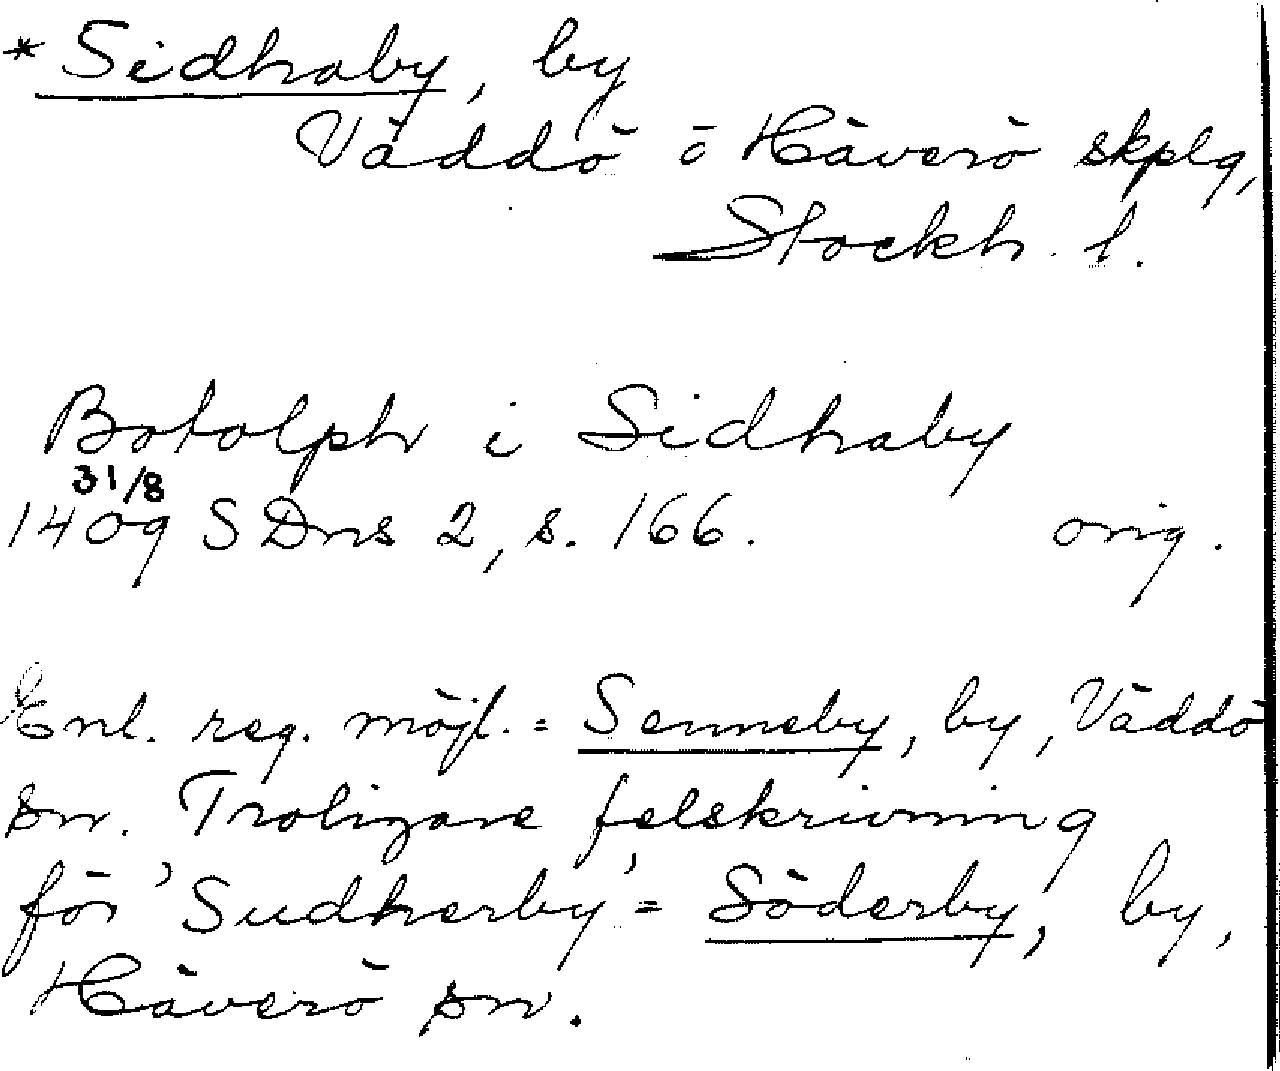 *Sidhaby, by
Väddö o Häverö skplg,
Stockh. l.
Botolph i Sidhaby
31/8
1409 SDns 2, s. 166. orig.
Enl. reg. möjl. = Senneby, by, Väddö
sn. Troligare felskrivning
för 'Sudherby' = Söderby, by,
Häverö sn.